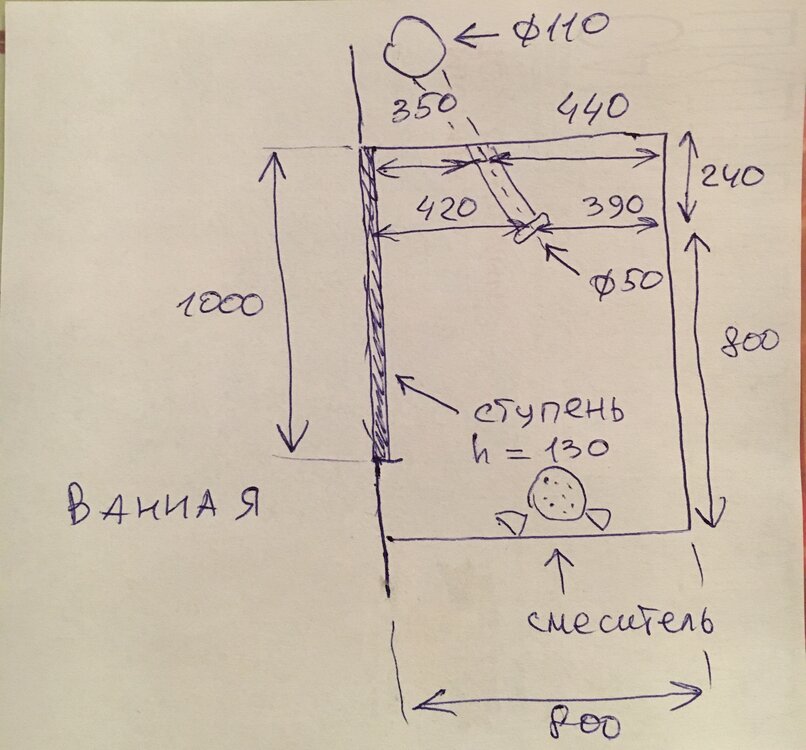 φ110
350
440
240
420
390
φ50
1000
800
ступень
h = 130
ВАННАЯ
смеситель
800